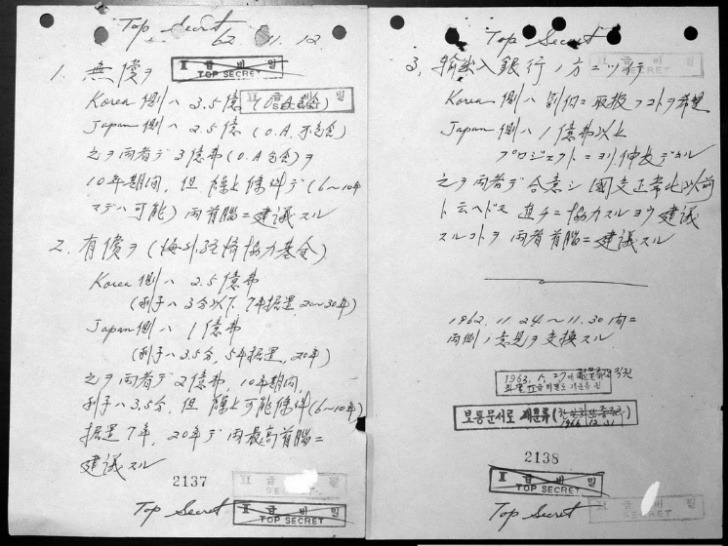 Top Secret
62. 11. 12
II 급 비 밀
TOP SECRET
1. 無償ヲ
Korea側ハ 3.5億 (O.A.包含)
Japan側ハ 2.5億 (O.A.不包含)
之ヲ両者デ 3億弗 (O.A包含) ヲ
10年期間, 但 繰上條件デ (6〜10年
マデハ可能) 両首脳ニ建議スル
2. 有償ヲ (海外経済協力基金)
Korea側ハ 2.5億弗
(利子ハ3分以下, 7年据置, 20〜30年)
Japan側ハ 1億弗
(利子ハ3.5分, 5年据置, 20年)
之ヲ両者デ 2億弗, 10年期間,
利子ハ3.5分, 但 繰上可能條件 (6〜10年)
据置7年, 20年デ両最高首脳ニ
建議スル
2137
II 급 비 밀
SECRET
Top Secret
II 급 비 밀
TOP SECRET
Top Secret
3. 輸出入銀行ノ方ニツ
Korea側ハ 別個ニ取扱フコトヲ希望
Japan側ハ 1億弗以上
プロジェクトニヨリ伸長デカル
之ヲ両者デ合意シ 國交正常化以前
ト云ヘドモ 直チニ協力スルヨウ建議
スルコトヲ 両者首脳ニ建議スル
1962. 11. 24〜11. 30 間ニ
両側ノ意見ヲ交換スル
1963. 5. 27
보통문서로 재분류
1966. 12. 31
2138
II 급 비 밀
TOP SECRET
Top Secret
II 급 비 밀
SECRET